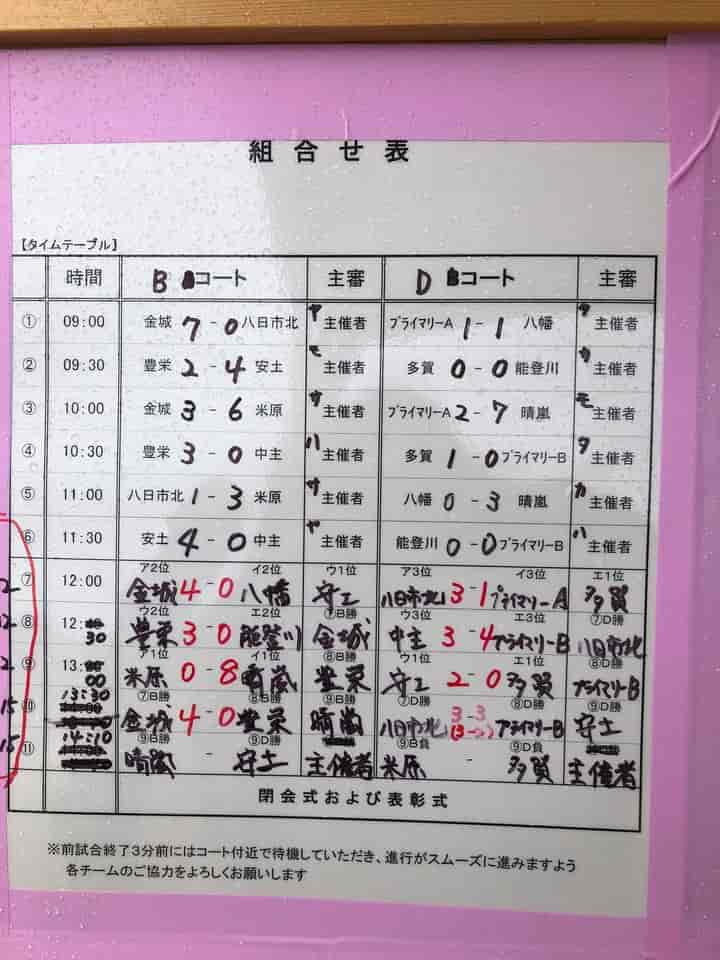 組合せ表
【タイムテーブル】
時間 B コート 主審 D コート 主審
① 09:00 金城 7 - 0 八日市北 ヤ 主催者 プライマリーA 1 - 1 八幡 タ 主催者
② 09:30 豊栄 2 - 4 安土 モ 主催者 多賀 0 - 0 能登川 カ 主催者
③ 10:00 金城 3 - 6 米原 サ 主催者 プライマリーA 2 - 7 晴嵐 モ 主催者
④ 10:30 豊栄 3 - 0 中主 ハ 主催者 多賀 1 - 0 プライマリーB タ 主催者
⑤ 11:00 八日市北 1 - 3 米原 サ 主催者 八幡 0 - 3 晴嵐 カ 主催者
⑥ 11:30 安土 4 - 0 中主 ヤ 主催者 能登川 0 - 0 プライマリーB ハ 主催者
ア2位 イ2位 ウ1位 ア3位 イ3位 エ1位
2 ⑦ 12:00 金城 4 - 0 八幡 安土 八日市北 3 - 1 プライマリーA 多賀
ウ2位 エ2位 ⑦B勝 ウ3位 エ3位 ⑦D勝
2 ⑧ 12:30 豊栄 3 - 0 能登川 金城 中主 3 - 4 プライマリーB 八日市北
ア1位 イ1位 ⑧B勝 ウ1位 エ1位 ⑧D勝
2 ⑨ 13:00 米原 0 - 8 晴嵐 豊栄 安土 2 - 0 多賀 プライマリーB
⑦B勝 ⑧B勝 ⑨B勝 ⑦D勝 ⑧D勝 ⑨D勝
15 ⑩ 13:30 金城 4 - 0 豊栄 晴嵐 八日市北 3 - 3 プライマリーB 安土
⑨B勝 ⑨D勝 ⑨B負 ⑨D負
15 ⑪ 14:10 晴嵐 - 安土 主催者 米原 - 多賀 主催者
閉会式および表彰式
※前試合終了3分前にはコート付近で待機していただき、進行がスムーズに進みますよう
各チームのご協力をよろしくお願いします